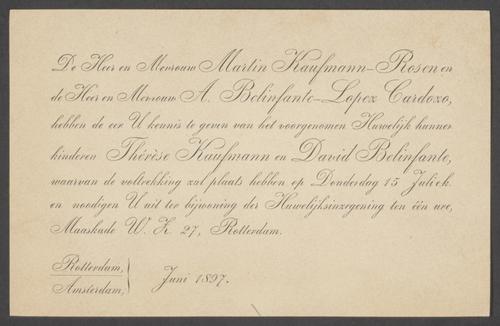 De Heer en Mevrouw Martin Kaufmann-Rosen en
de Heer en Mevrouw A. Belinfante-Lopez Cardozo,
hebben de eer U kennis te geven van het voorgenomen Huwelijk hunner
kinderen Thérèse Kaufmann en David Belinfante,
waarvan de voltrekking zal plaats hebben op Donderdag 15 Juli e.k.
en noodigen U uit ter bijwoning der Huwelijksinzegening ten één ure,
Maaskade W. Z. 27, Rotterdam.
Rotterdam,
Amsterdam,
Juni 1897.